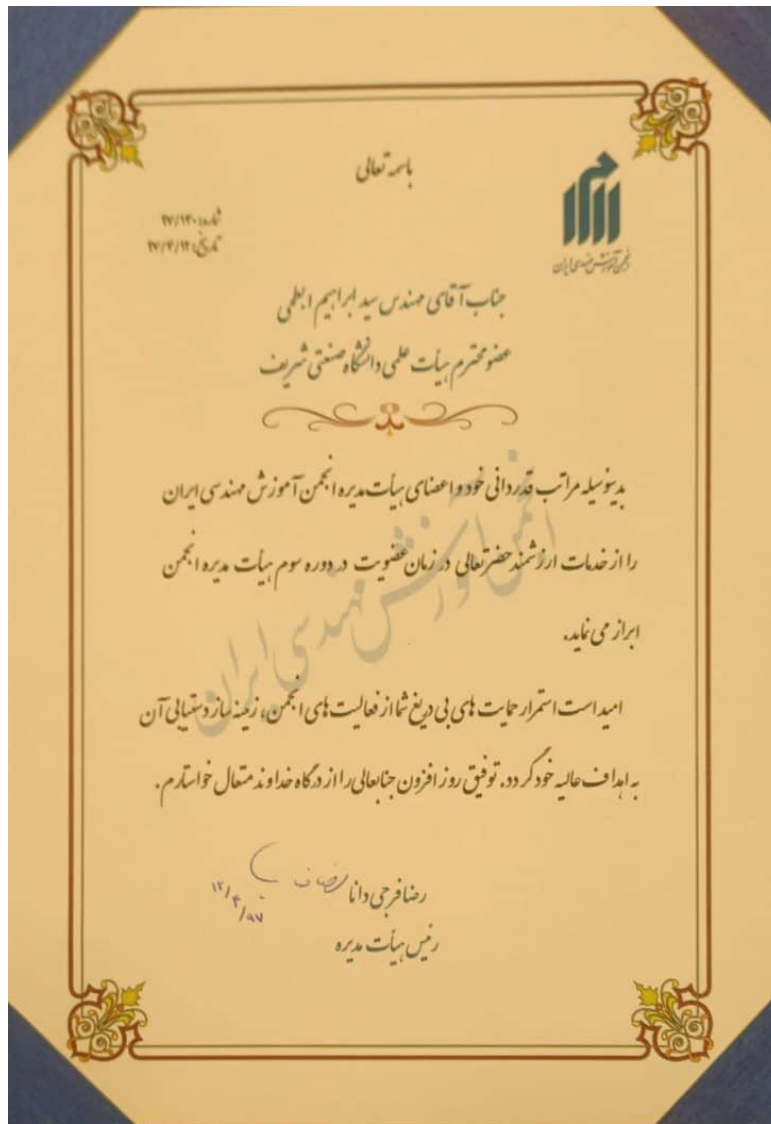 باسمه تعالی
شماره: ۹۷/۱۳۰
تاریخ: ۹۷/۴/۱۲
انجمن آموزش مهندسی ایران
جناب آقای مهندس سید ابراهیم ابطحی
عضو محترم هیأت علمی دانشگاه صنعتی شریف
بدینوسیله مراتب قدردانی خود و اعضای هیأت مدیره انجمن آموزش مهندسی ایران
را از خدمات ارزشمند حضرتعالی در زمان عضویت در دوره سوم هیأت مدیره انجمن
ابراز می نماید.
امید است استمرار حمایت های بی دریغ شما از فعالیت های انجمن، زمینه ساز دستیابی آن
به اهداف عالیه خود گردد. توفیق روز افزون جنابعالی را از درگاه خداوند متعال خواستارم.
انجمن آموزش مهندسی ایران
رضا فرجی دانا
۱۲/۴/۹۷
رئیس هیأت مدیره